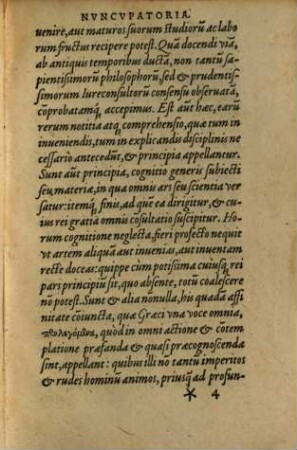 NVNCVPATORIA.
uenire, aut maturos suorum studiorū ac labo
rum fructus recipere potest. Quā docendi viā,
ab antiquis temporibus ductā, non tantū sa-
pientissimorū philosophorū, sed & prudentis-
simorum Iureconsultorū consensu obseruatā,
coprobatamq; accepimus. Est aūt hæc, earū
rerum notitia atq; comprehensio, quæ tum in
inueniendis, tum in explicandis disciplinis ne
cessario antecedūt, & principia appellantur.
Sunt aūt principia, cognitio generis subiecti
seu materiæ, in qua omnis ars seu scientia ver
satur: itemq; finis, ad quē ea dirigitur, & cu-
ius rei gratia omnis cōsultatio suscipitur. Ho-
rum cognitione neglecta, fieri profecto nequit
vt artem aliquā aut inuenias, aut inuentam
recte doceas: quippe cum potissima cuiusq; rei
pars principiū sit, quo absente, totū coalescere
nō potest. Sunt & alia nonulla, his quadā affi
nitate cōiuncta, quæ Græci vna voce omnia,
προλεγόμενα, quòd in omni actione & cōtem
platione præfanda & quasi præcognoscenda
sint, appellant: quibus illi nō tantū imperitos
& rudes hominū animos, priusq̄ ad profun-
* 4